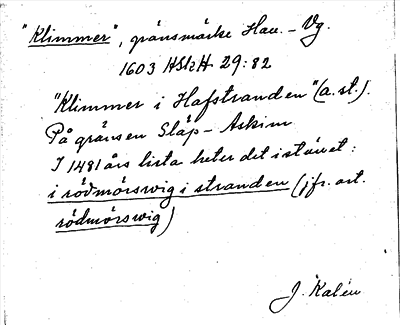 "Klimmer", gränsmärke Hall. - Vg.
1603 HSH 29:82
"Klimmer i Hafstranden" (a. st.).
På gränsen Släp - Askim
I 1481 års lista heter det istället:
i rödmörswig i stranden (jfr. art.
rödmörswig)
J. Kalén